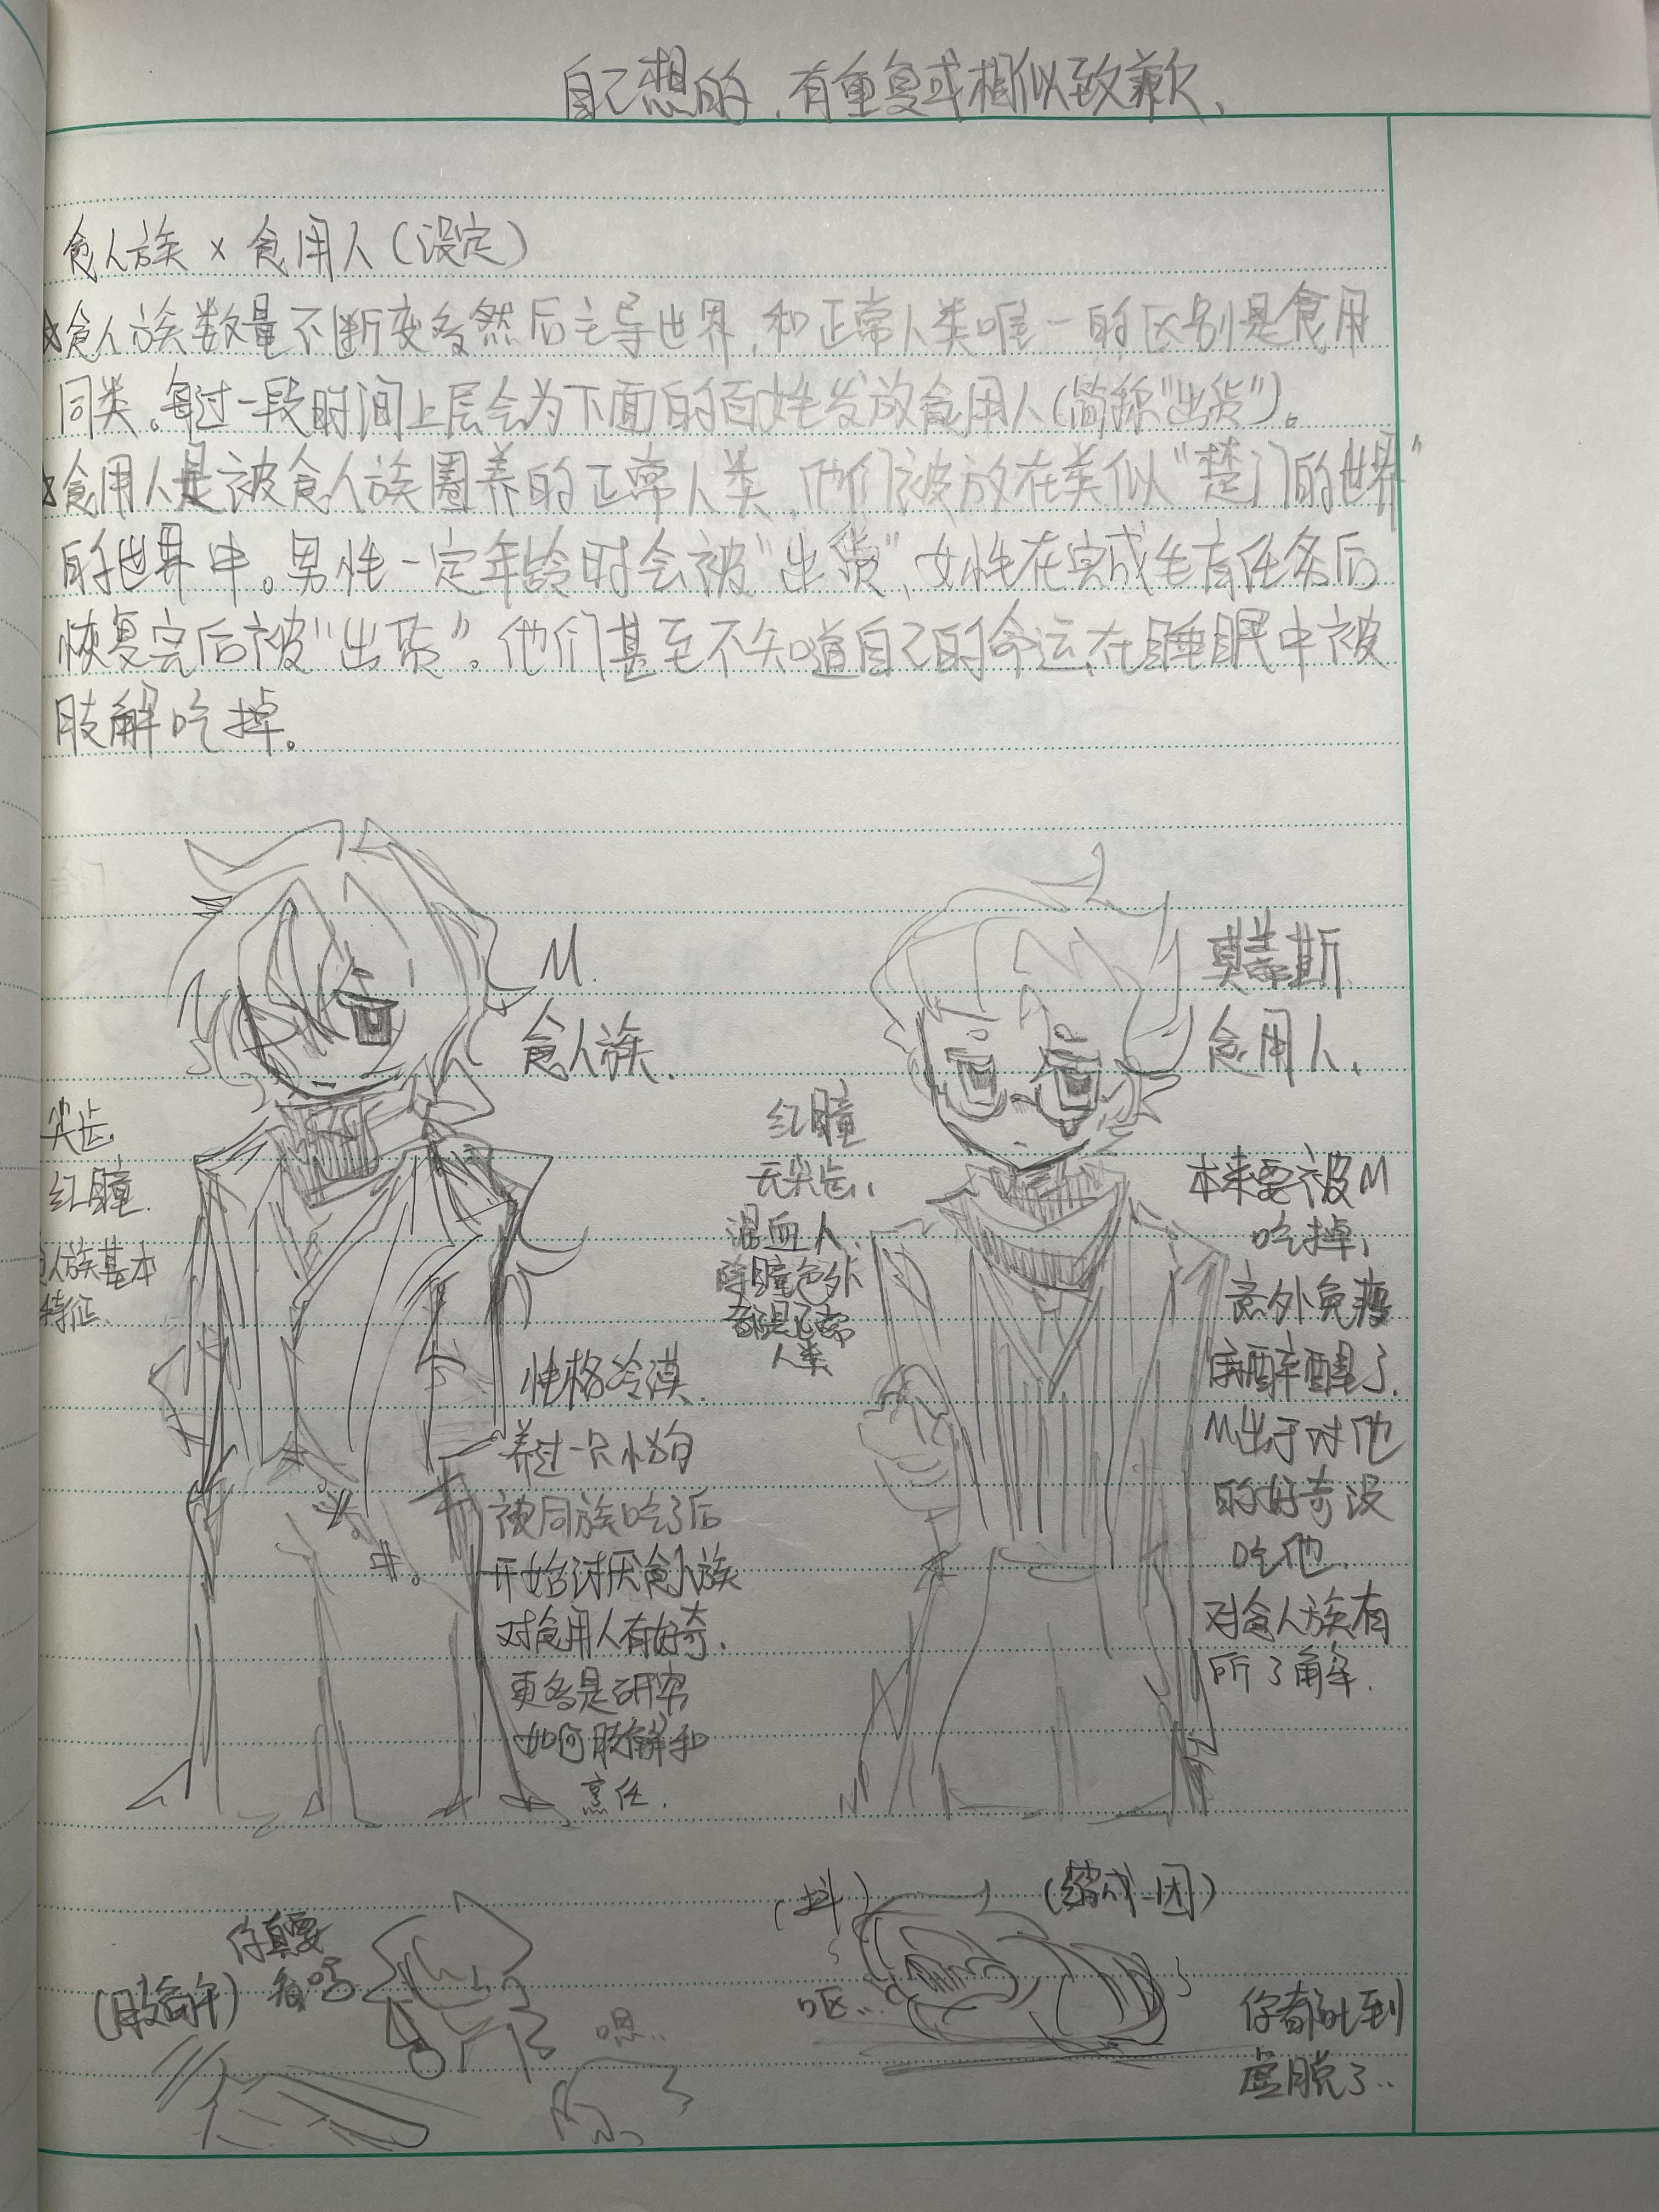 自己想的,有重复或相似致歉、
食人族×食用人(设定)
☆食人族数量不断变多然后主导世界,和正常人类唯一的区别是食用
同类。每过一段时间上层会为下面的百姓发放食用人(简称"出货")。
☆食用人是被食人族圈养的正常人类,他们被放在类似"楚门的世界"
的世界中。男性一定年龄时会被"出货",女性在完成生育任务后
恢复完后被"出货"。他们甚至不知道自己的命运,在睡眠中被
肢解吃掉。
M.
食人族.
尖齿,
红瞳.
人族基本
特征.
性格冷漠.
养过一只
被同族吃了后
开始讨厌食人族
对食用人有好奇.
更多是研究
如何肢解和
烹饪.
莫蒂斯
食用人、
红瞳
无尖齿,
混血人、
除瞳色外
都是正常
人类
本来要被M
吃掉,
意外免疫
麻醉醒了.
M出于对他
的好奇没
吃他.
对食人族有
所了解.
你真要
看吗
(肢解)
嗯..
(抖)
(缩成一团)
呕..
你都吐到
虚脱了..